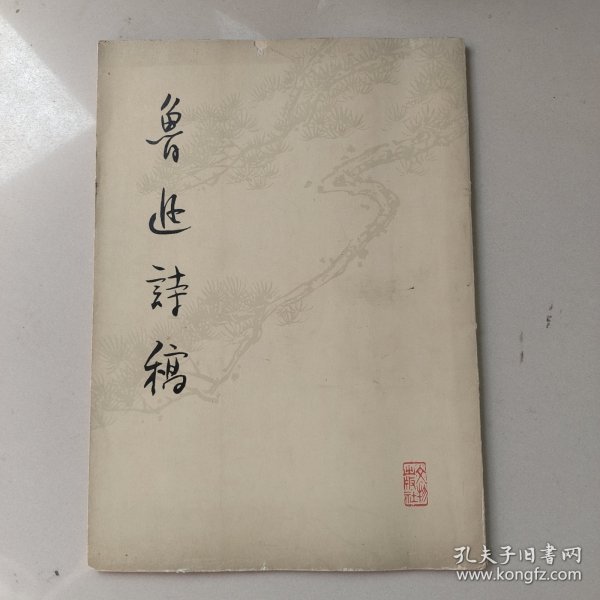 魯迅詩稿
文物出版社
孔夫子旧書网
www.kongfz.com